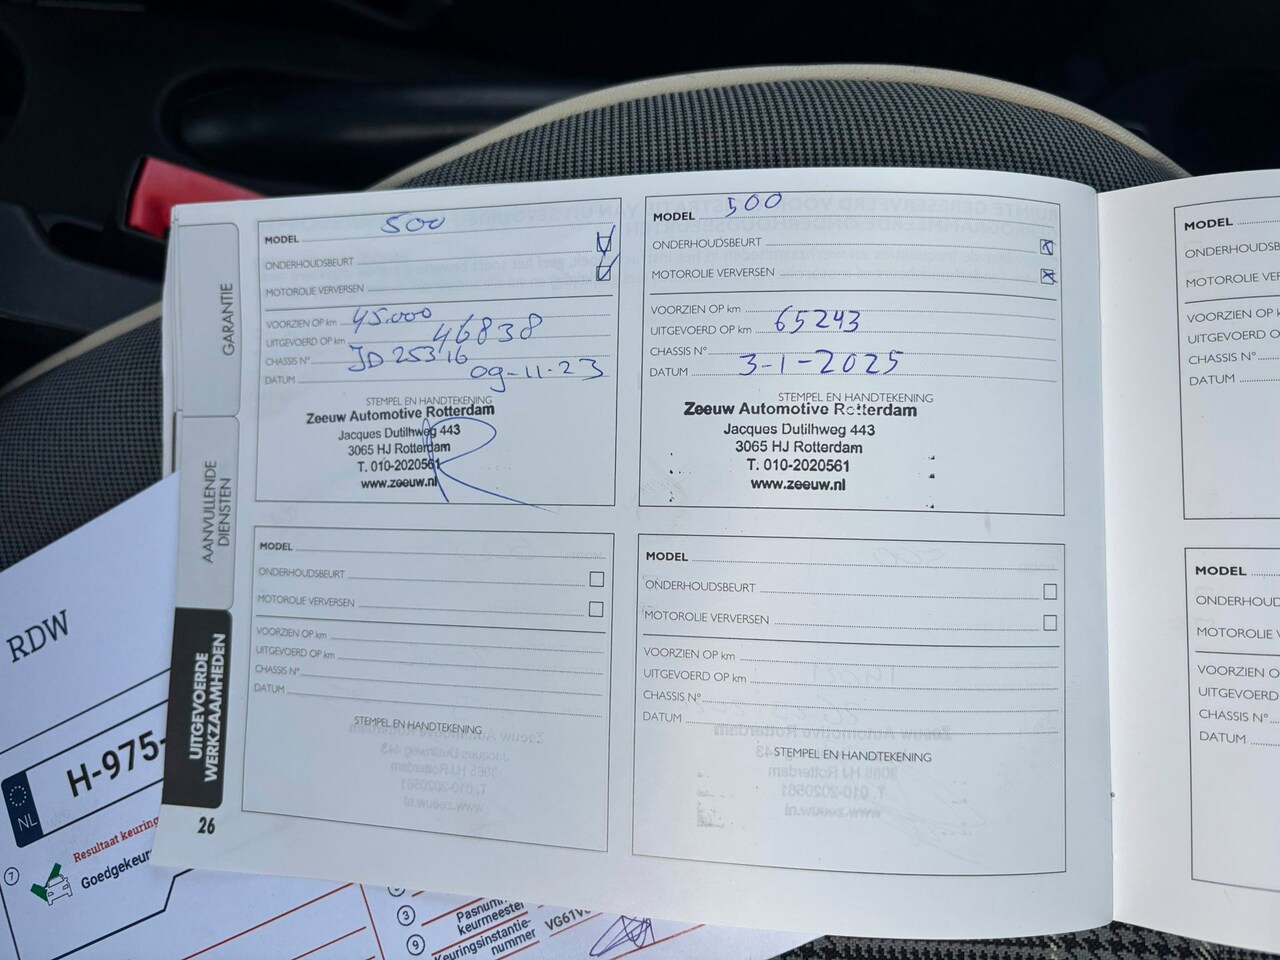 GARANTIE
AANVULLENDE
DIENSTEN
UITGEVOERDE
WERKZAAMHEDEN
26
MODEL 500
ONDERHOUDSBEURT
MOTOROLIE VERVERSEN
VOORZIEN OP km 45.000
UITGEVOERD OP km 46838
CHASSIS N° JD25316
DATUM 09-11-23
STEMPEL EN HANDTEKENING
Zeeuw Automotive Rotterdam
Jacques Dutilhweg 443
3065 HJ Rotterdam
T. 010-2020561
www.zeeuw.nl
MODEL 500
ONDERHOUDSBEURT
MOTOROLIE VERVERSEN
VOORZIEN OP km
UITGEVOERD OP km 65243
CHASSIS N°
DATUM 3-1-2025
STEMPEL EN HANDTEKENING
Zeeuw Automotive Rotterdam
Jacques Dutilhweg 443
3065 HJ Rotterdam
T. 010-2020561
www.zeeuw.nl
MODEL
ONDERHOUDSBEURT
MOTOROLIE VERVERSEN
VOORZIEN OP km
UITGEVOERD OP km
CHASSIS N°
DATUM
STEMPEL EN HANDTEKENING
MODEL
ONDERHOUDSBEURT
MOTOROLIE VERVERSEN
VOORZIEN OP km
UITGEVOERD OP km
CHASSIS N°
DATUM
STEMPEL EN HANDTEKENING
MODEL
ONDERHOUDSB
MOTOROLIE VE
VOORZIEN OP
UITGEVOERD
CHASSIS N°
DATUM
MODEL
ONDERHOUD
MOTOROLIE V
VOORZIEN O
UITGEVOERD
CHASSIS N°
DATUM
RDW
NL
H-975-
Resultaat keuring
7
Goedgekeur
3
Pasnum
keurmeester
9
Keuringsinstantie-
nummer VG61V